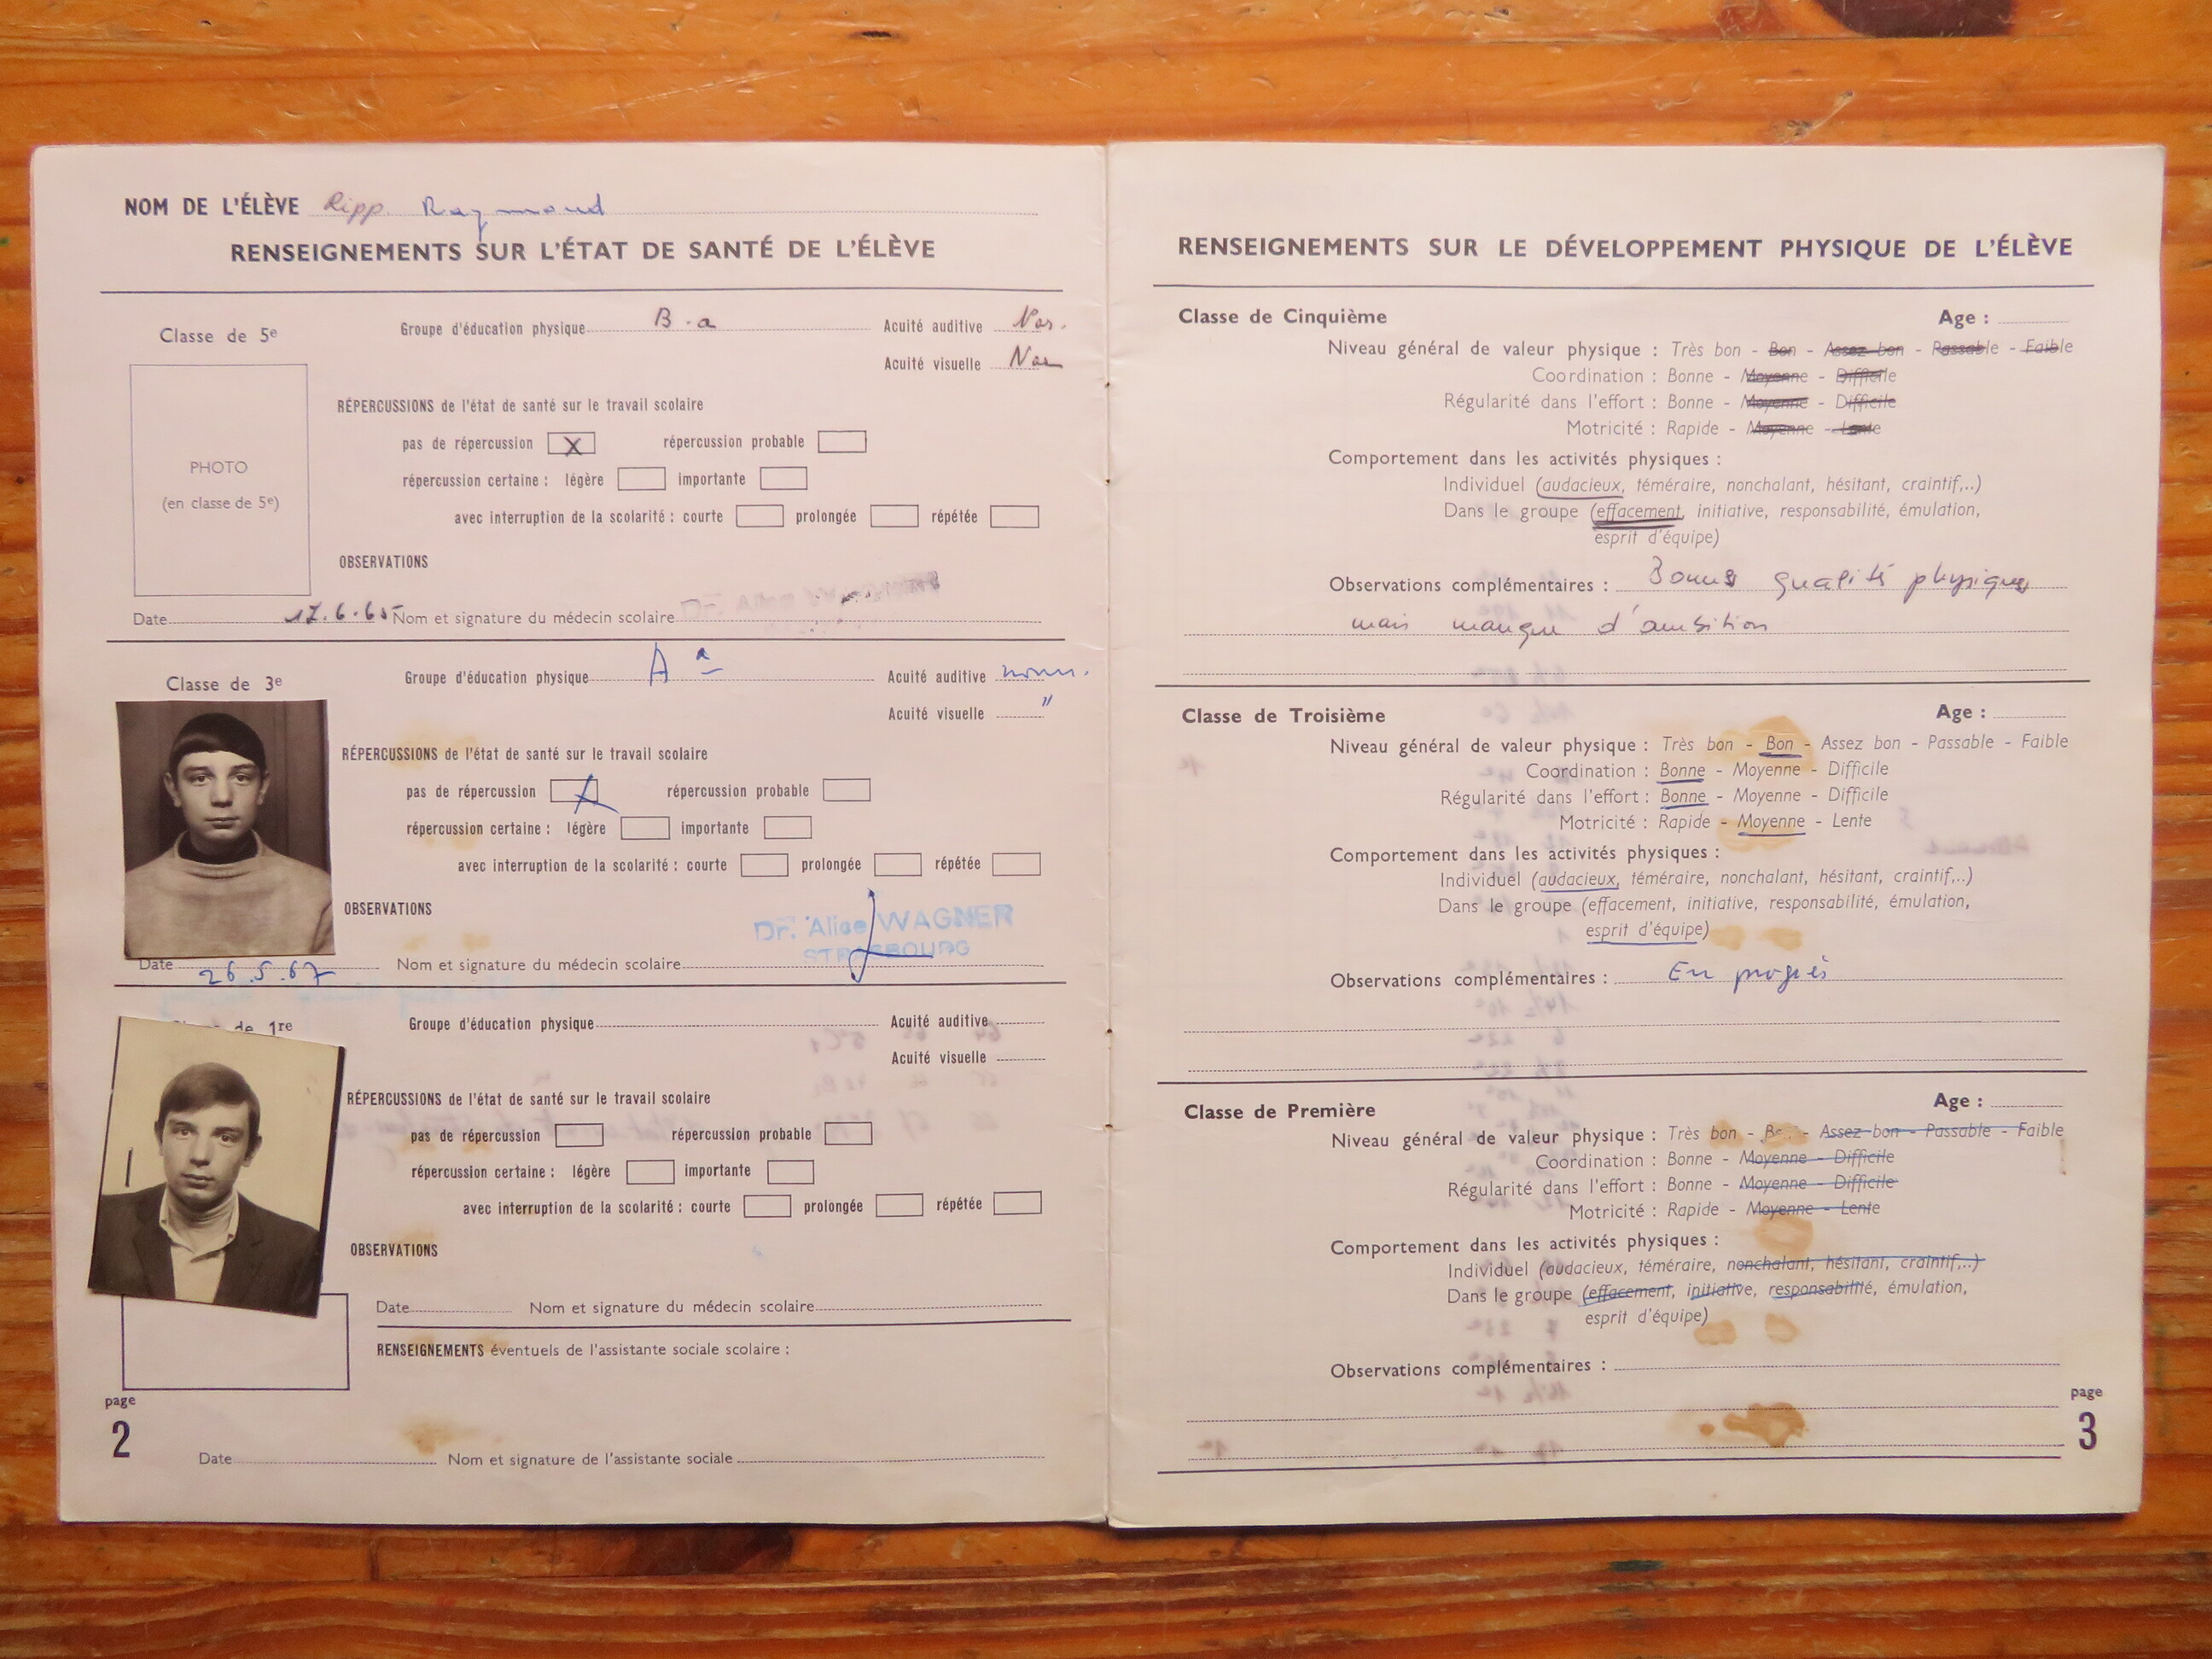 NOM DE L'ÉLÈVE Ripp Raymond
RENSEIGNEMENTS SUR L'ÉTAT DE SANTÉ DE L'ÉLÈVE
Classe de 5e
Groupe d'éducation physique B.a
Acuité auditive Nor.
Acuité visuelle Nor
PHOTO
(en classe de 5e)
RÉPERCUSSIONS de l'état de santé sur le travail scolaire
pas de répercussion X répercussion probable
répercussion certaine : légère importante
avec interruption de la scolarité : courte prolongée répétée
OBSERVATIONS
Date 17.6.65 Nom et signature du médecin scolaire Dr. Alice WAGNER
Classe de 3e
Groupe d'éducation physique A a
Acuité auditive norm.
Acuité visuelle "
RÉPERCUSSIONS de l'état de santé sur le travail scolaire
pas de répercussion X répercussion probable
répercussion certaine : légère importante
avec interruption de la scolarité : courte prolongée répétée
OBSERVATIONS
Dr. Alice WAGNER
STRASBOURG
Date 26.5.67 Nom et signature du médecin scolaire
de 1re
Groupe d'éducation physique
Acuité auditive
Acuité visuelle
RÉPERCUSSIONS de l'état de santé sur le travail scolaire
pas de répercussion répercussion probable
répercussion certaine : légère importante
avec interruption de la scolarité : courte prolongée répétée
OBSERVATIONS
Date Nom et signature du médecin scolaire
RENSEIGNEMENTS éventuels de l'assistante sociale scolaire :
page
2
Date Nom et signature de l'assistante sociale
RENSEIGNEMENTS SUR LE DÉVELOPPEMENT PHYSIQUE DE L'ÉLÈVE
Classe de Cinquième Age :
Niveau général de valeur physique : Très bon - Bon - Assez bon - Passable - Faible
Coordination : Bonne - Moyenne - Difficile
Régularité dans l'effort : Bonne - Moyenne - Difficile
Motricité : Rapide - Moyenne - Lente
Comportement dans les activités physiques :
Individuel (audacieux, téméraire, nonchalant, hésitant, craintif,..)
Dans le groupe (effacement, initiative, responsabilité, émulation,
esprit d'équipe)
Observations complémentaires : Bonnes qualités physiques
mais manque d'ambition
Classe de Troisième Age :
Niveau général de valeur physique : Très bon - Bon - Assez bon - Passable - Faible
Coordination : Bonne - Moyenne - Difficile
Régularité dans l'effort : Bonne - Moyenne - Difficile
Motricité : Rapide - Moyenne - Lente
Comportement dans les activités physiques :
Individuel (audacieux, téméraire, nonchalant, hésitant, craintif,..)
Dans le groupe (effacement, initiative, responsabilité, émulation,
esprit d'équipe)
Observations complémentaires : En progrès
Classe de Première Age :
Niveau général de valeur physique : Très bon - Bon - Assez bon - Passable - Faible
Coordination : Bonne - Moyenne - Difficile
Régularité dans l'effort : Bonne - Moyenne - Difficile
Motricité : Rapide - Moyenne - Lente
Comportement dans les activités physiques :
Individuel (audacieux, téméraire, nonchalant, hésitant, craintif,..)
Dans le groupe (effacement, initiative, responsabilité, émulation,
esprit d'équipe)
Observations complémentaires :
page
3